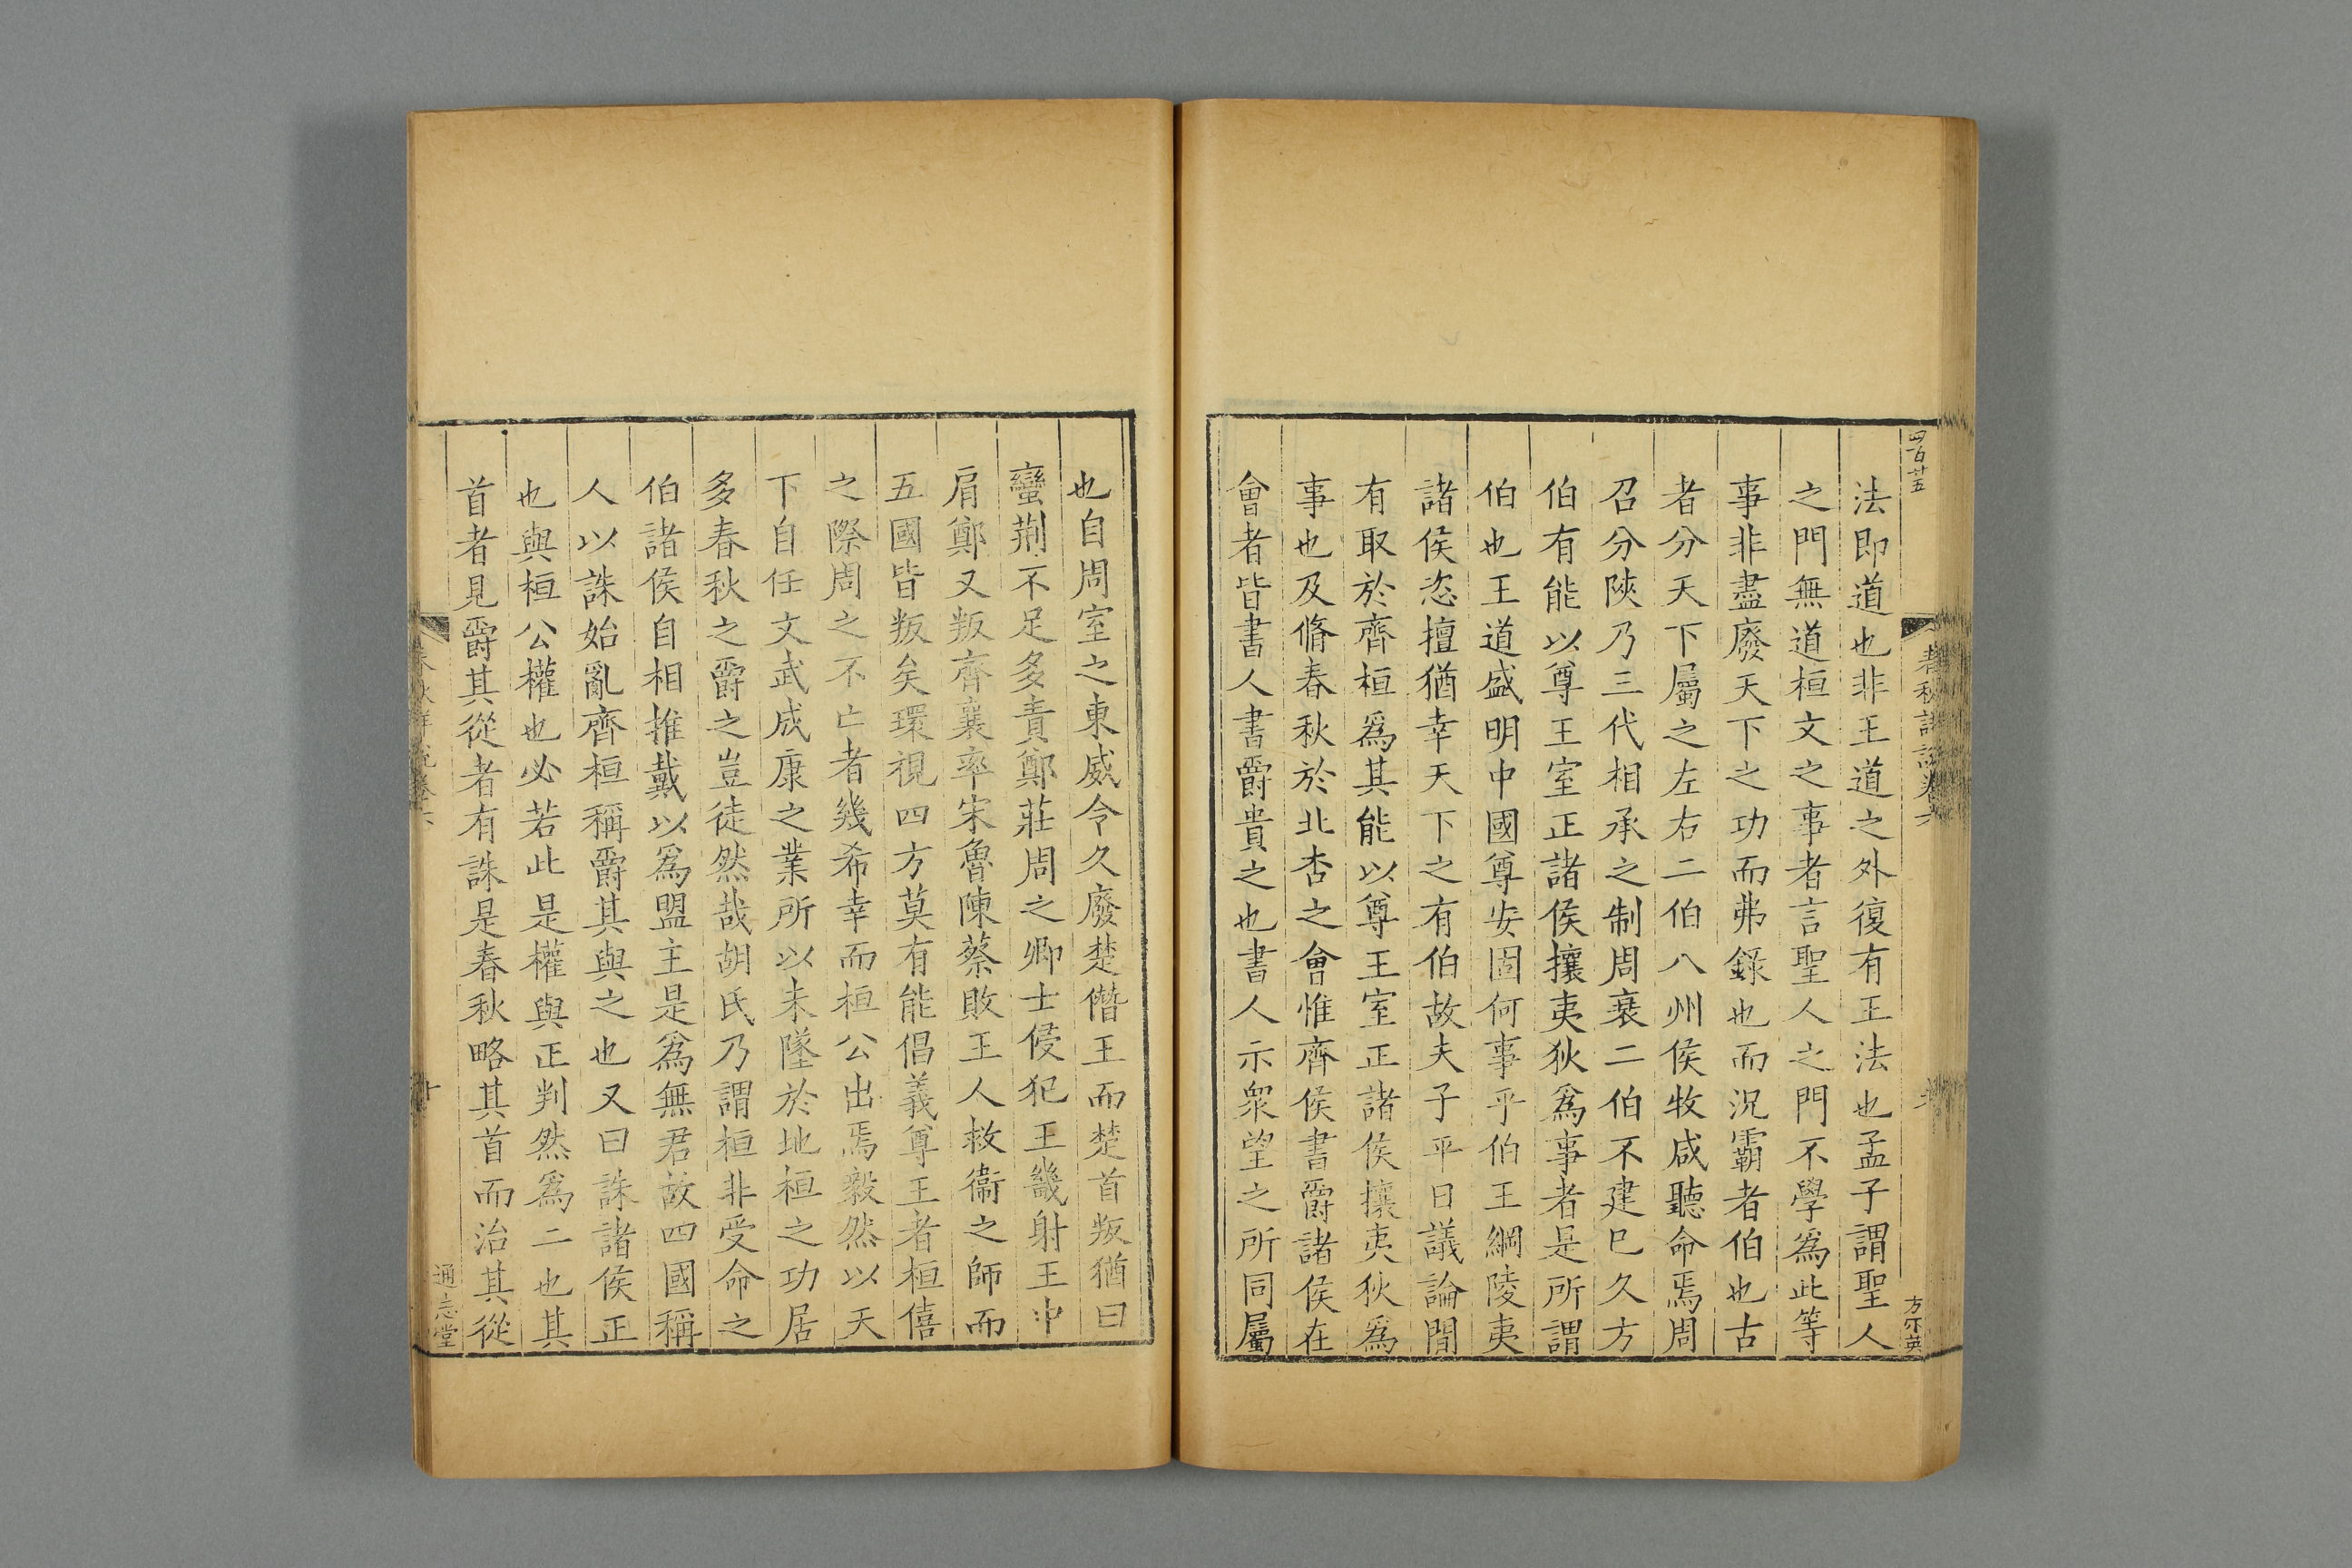 四百廿五
春秋詳說卷六
方不英
法即道也非王道之外復有王法也孟子謂聖人
之門無道桓文之事者言聖人之門不學爲此等
事非盡廢天下之功而弗錄也而況霸者伯也古
者分天下屬之左右二伯八州侯牧咸聽命焉周
召分陝乃三代相承之制周衰二伯不建巳久方
伯有能以尊王室正諸侯攘夷狄爲事者是所謂
伯也王道盛明中國尊安固何事乎伯王綱陵夷
諸侯恣擅猶幸天下之有伯故夫子平日議論閒
有取於齊桓爲其能以尊王室正諸侯攘夷狄爲
事也及脩春秋於北杏之會惟齊侯書爵諸侯在
會者皆書人書爵貴之也書人示衆望之所同屬
也自周室之東威令久廢楚僭王而楚首叛猶曰
蠻荆不足多責鄭莊周之卿士侵犯王畿射王中
肩鄭又叛齊襄率宋魯陳蔡敗王人救衞之師而
五國皆叛矣環視四方莫有能倡義尊王者桓僖
之際周之不亡者幾希幸而桓公出焉毅然以天
下自任文武成康之業所以未墜於地桓之功居
多春秋之爵之豈徒然哉胡氏乃謂桓非受命之
伯諸侯自相推戴以爲盟主是爲無君故四國稱
人以誅始亂齊桓稱爵其與之也又曰誅諸侯正
也與桓公權也必若此是權與正判然爲二也其
首者見爵其從者有誅是春秋略其首而治其從
春秋詳說卷六
十
通志堂